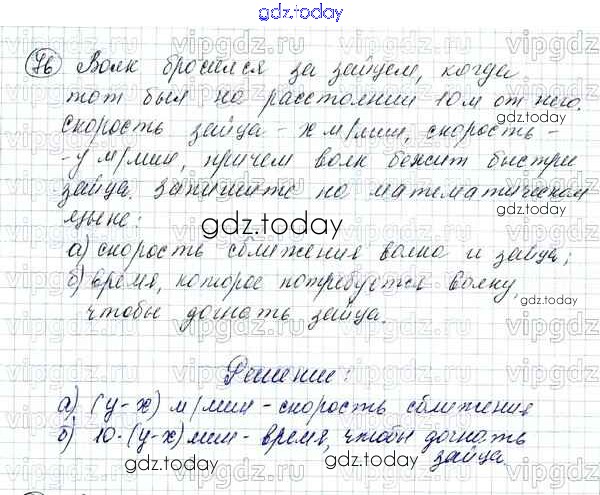 gdz.today
76 Волк бросился за зайцем, когда
тот был на расстоянии 10 м от него.
скорость зайца - х м/мин, скорость -
- у м/мин, причем волк бежит быстрее
зайца. запишите на математическом
языке:
gdz.today
а) скорость сближения волка и зайца;
б) время, которое потребуется волку,
чтобы догнать зайца.
Решение:
а) (у-х) м/мин - скорость сближения
б) 10·(у-х) мин - время, чтобы догнать
зайца.
gdz.today
gdz.today